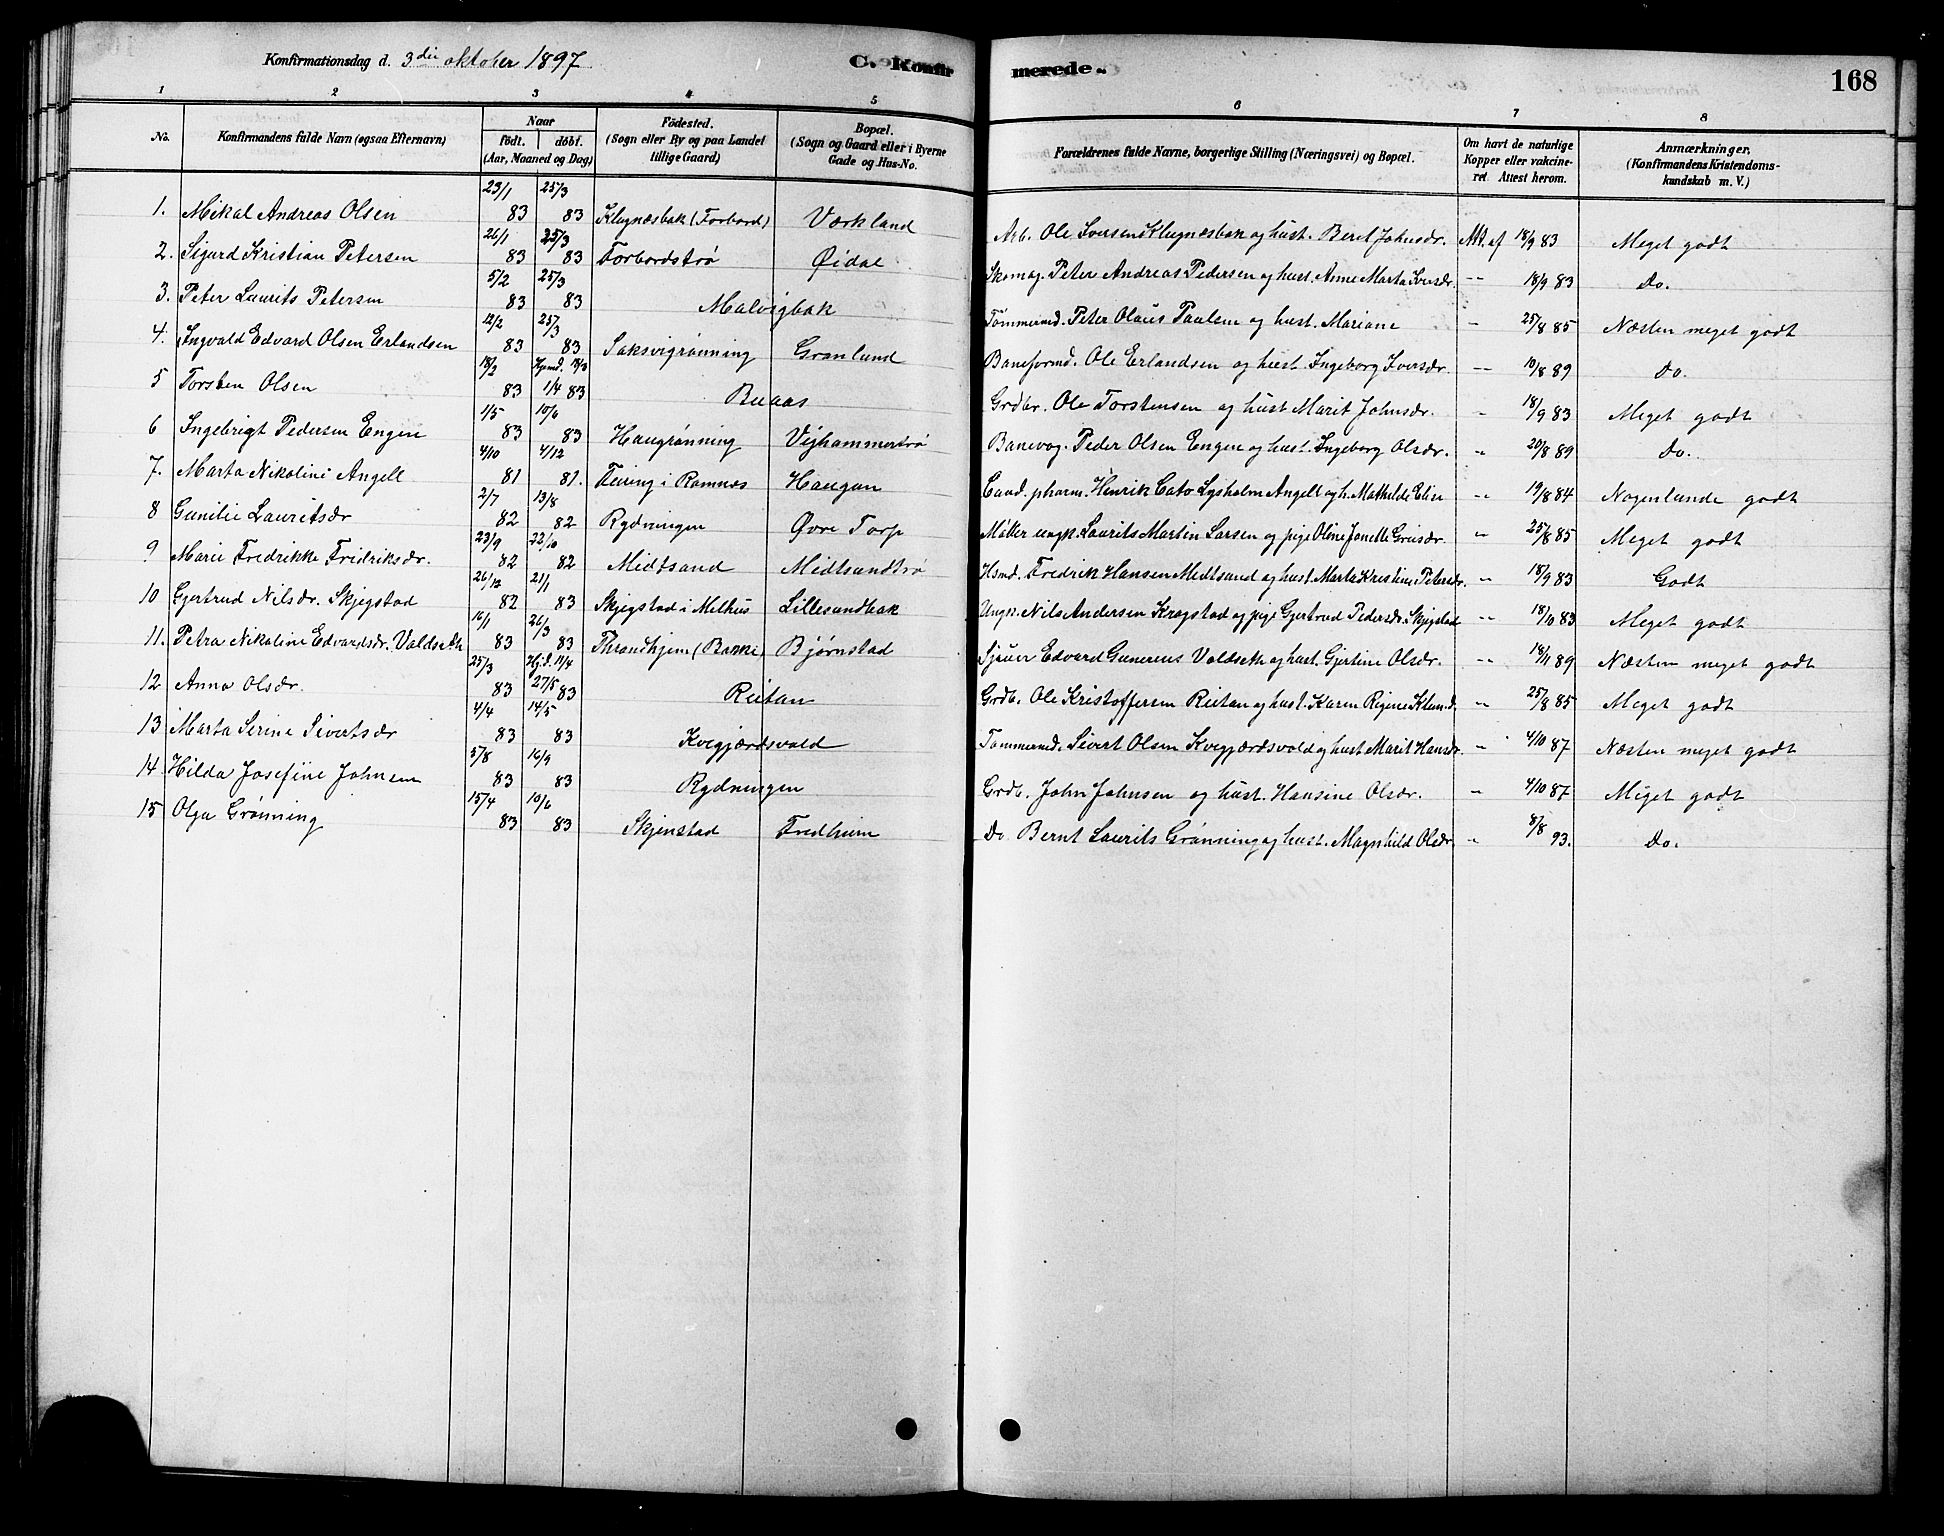 Konfirmationsdag d. 3die oktober 1897
C. Konfirmerede.
168
1 2 3 4 5 6 7 8
No. Konfirmandens fulde Navn (øgsaa Efternavn) Naar födt. döbt. (Aar, Maaned og Dag) Födested. (Sogn eller By og paa Landet tillige Gaard) Bopæl. (Sogn og Gaard eller i Byerne Gade og Hus-No. Forældrenes fulde Navne, borgerlige Stilling (Næringsvei) og Bopæl. Om havt de naturlige Kopper eller vakcineret Attest herom. Anmærkninger, (Konfirmandens Kristendomskundskab m. V.)
1. Mikal Andreas Olsen 23/1 83 25/3 83 Klugnæsbak (Forbord) Værkland Arb. Ole Iversen Klugnæsbak og hust. Beret Johnsdr. Att. af 18/9 83 Meget godt
2. Sigurd Kristian Petersen 26/1 83 25/3 83 Forbordstrø Øidal Skomag. Peter Andreas Pedersen og hust. Anne Marta Iversdr. " 18/9 83 Do.
3. Peter Laurits Petersen 5/2 83 25/3 83 Malvigbak Tömmermd. Peter Olaus Paulsen og hust. Mariane " 25/8 85 Næsten meget godt
4. Ingvald Edvard Olsen Erlandsen 12/2 83 25/3 83 Saksvigrønning Granlund Baneformd. Ole Erlandsen og hust Ingeborg Iversdr. " 10/8 89 Do.
5 Torsten Olsen 18/2 83 Hjemd. 18/3 1/4 83 Buaas Grdbr. Ole Torstensen og hust Marit Johnsdr. " 18/9 83 Meget godt
6 Ingebrigt Pedersen Engen 1/5 83 10/6 83 Haugrønning Vijhammertrø Banevog. Peder Olsen Engen og hust. Ingeborg Olsdr. " 20/8 89 Do.
7. Marta Nikoline Angell 4/10 81 4/12 81. Feiring i Ramnæs Haugan Cand. pharm. Henrik Cato Lysholm Angell og h. Mathilde Elise " 19/8 84 Nogenlunde godt
8 Gunilie Lauritsdr 2/7 82 13/8 82 Rydningen Øvre Torp Møller ungk. Laurits Martin Larsen og pige Oline Janette Greisdr. " 25/8 85 Meget godt
9 Marie Fredrikke Fridriksdr. 23/9 82 22/10 82 Midtsand Midtsandtrø Hsmd. Fredrik Hansen Midtsand og hust. Marta Kristine Petersdr. " 18/9 83 Godt
10 Gjertrud Nilsdr. Skjegstad 26/12 82 21/1 83 Skjegstad i Melhus Lillesandbak Ungk. Nils Andersen Krogstad og pige Gjertrud Pedersdr. Skjegstad " 18/10 83 Meget godt
11. Petra Nikoline Edvardsdr. Valdseth 16/1 83 26/3 83 Throndhjem (Bakke) Bjørnstad Sjauer Edvard Gunerius Valdseth og hust. Gjertine Olsdr. " 18/11 89 Næsten meget godt
12 Anna Olsdr. 25/3 83 Hj.d. 11/4 27/5 83 Reitan Grdb. Ole Kristoffersen Reitan og hust. Karen Regine Klem.d. " 25/8 85 Meget godt
13 Marta Serine Sivertsdr 4/4 83 14/5 83 Kvegjærdsvald Tømmermd. Sivert Olsen Kvegjærdsvald og hust Marit Hansdr. " 4/10 87 Næsten meget godt
14 Hilda Josefine Johnsen 5/8 83 16/9 83 Rydningen Grdb. John Johnsen og hust. Hansine Olsdr. " 4/10 87 Meget godt
15 Olga Grønning 15/4 83 10/6 83 Skjenstad Fredheim Do Bernt Laurits Grønning og hust. Magnhild Olsdr. " 8/8 93. Do.